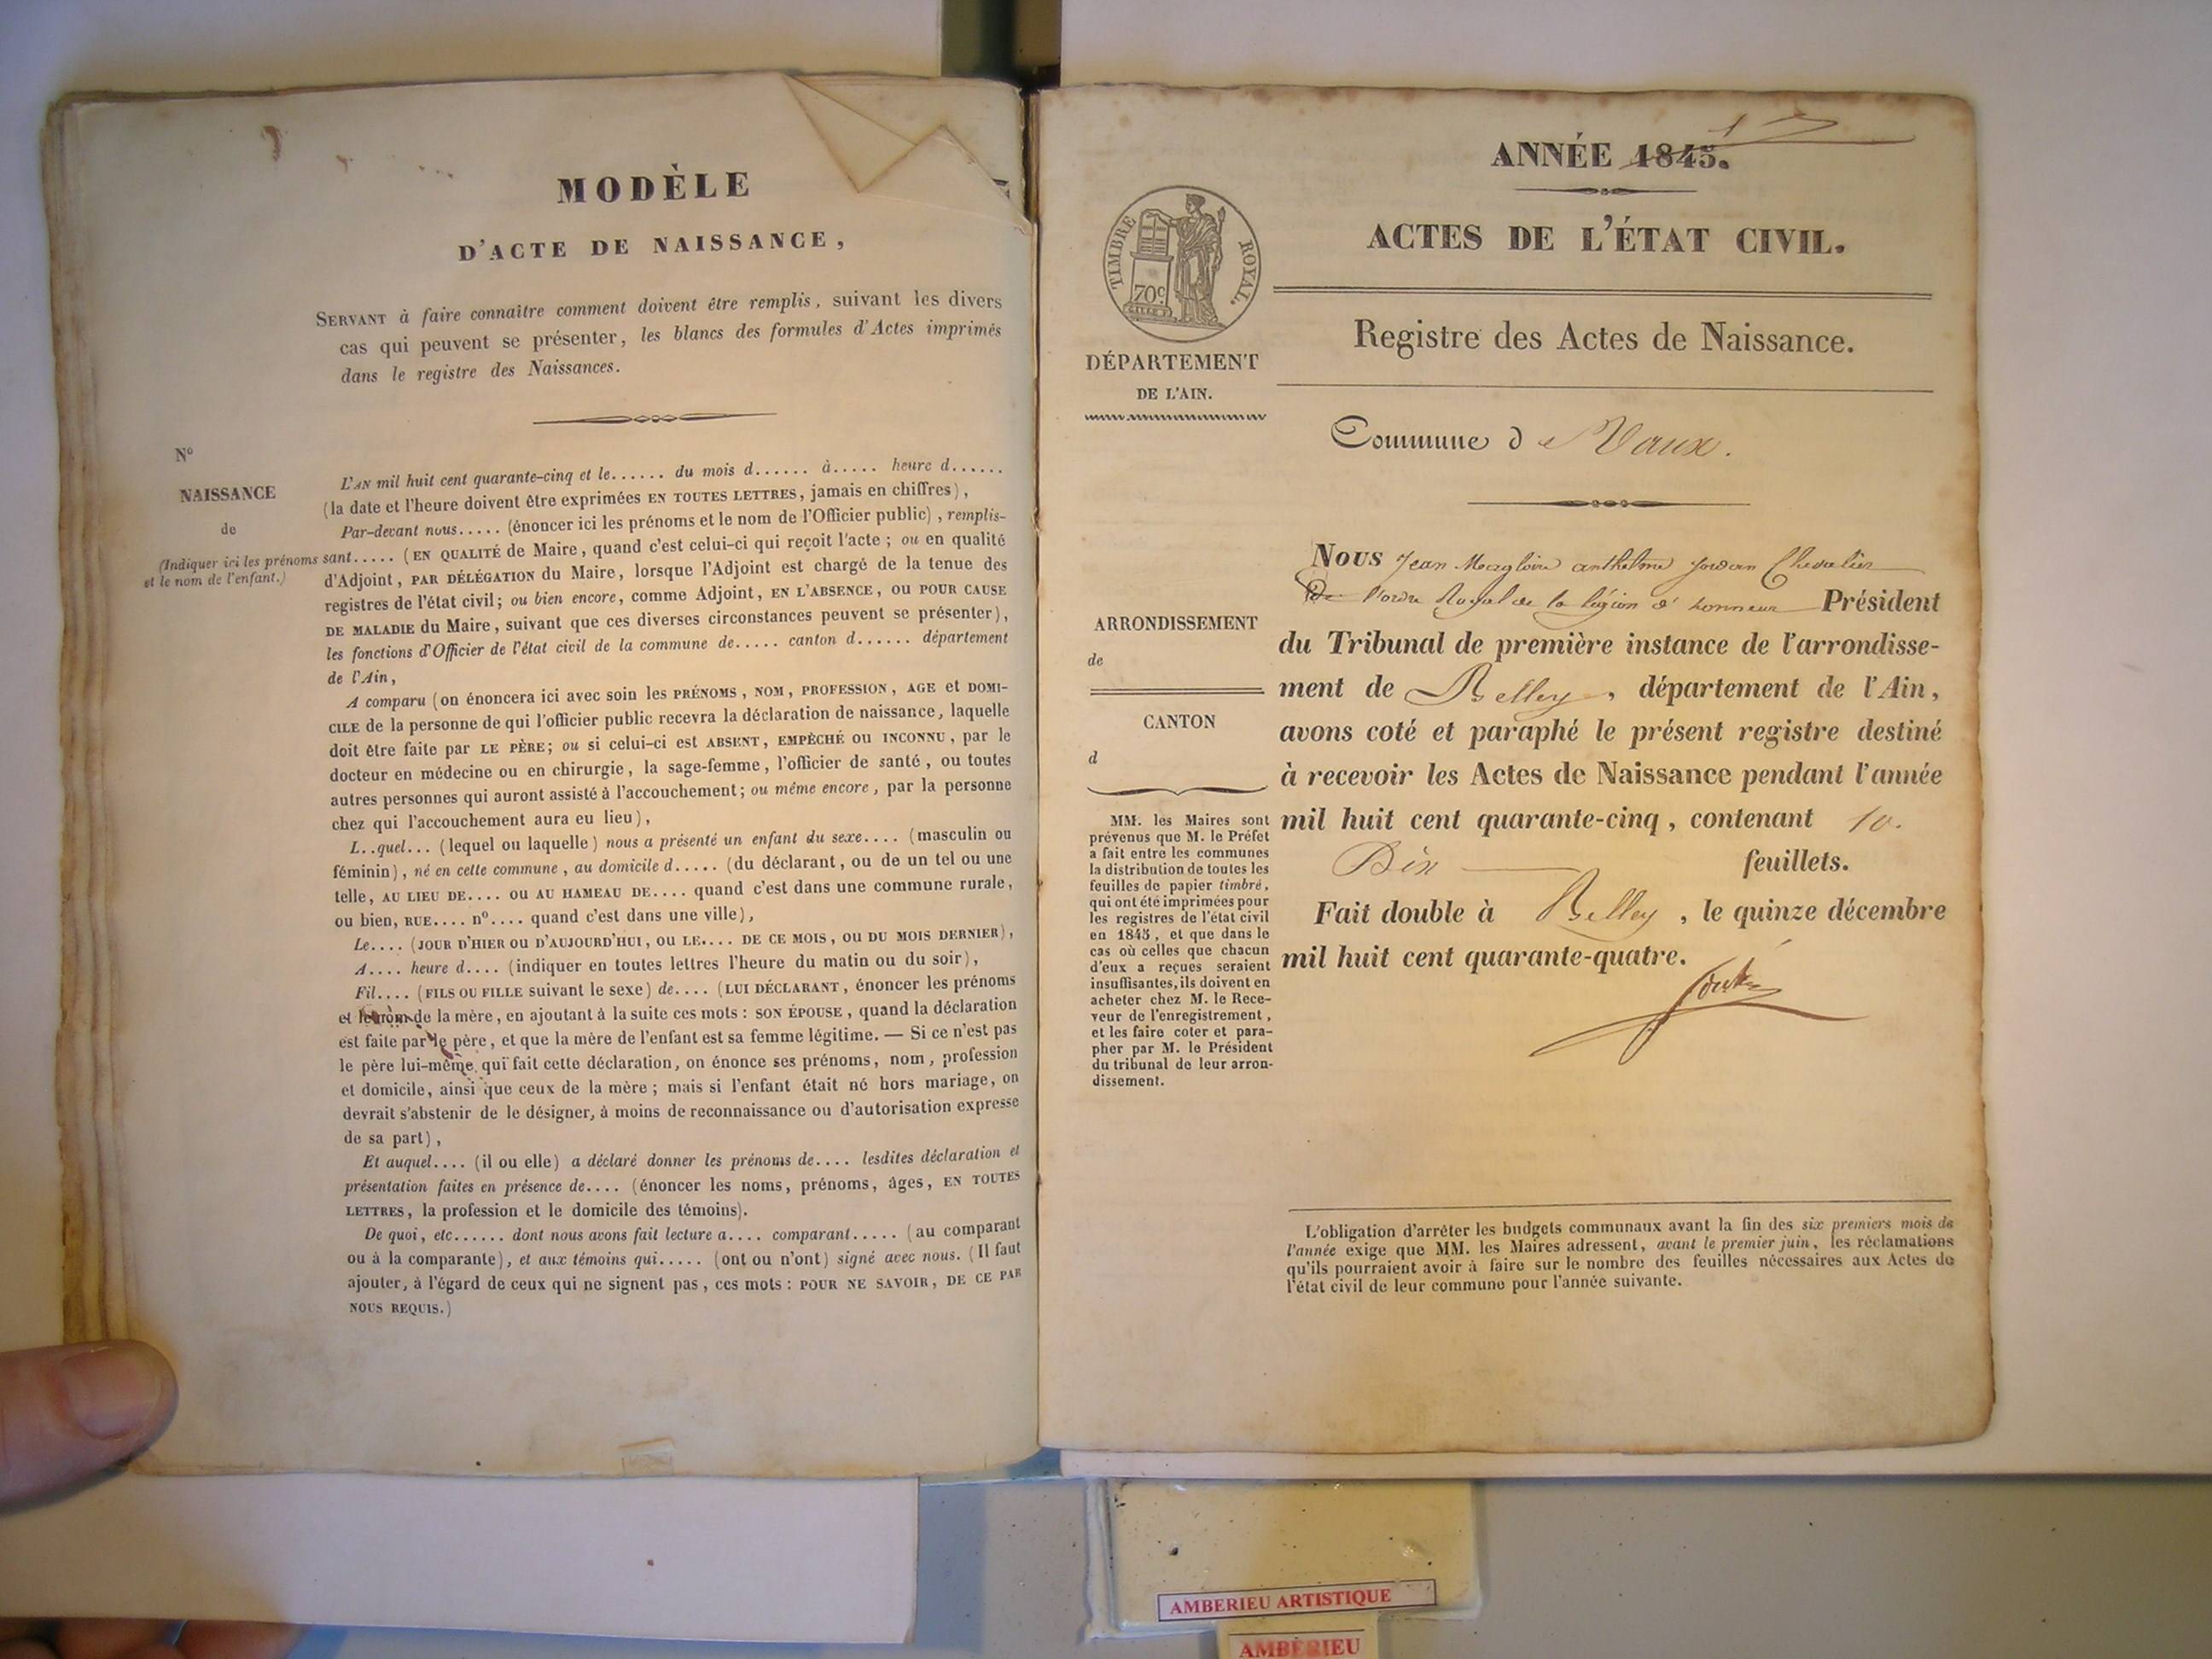 MODÈLE
D'ACTE DE NAISSANCE,
SERVANT à faire connaître comment doivent être remplis, suivant les divers
cas qui peuvent se présenter, les blancs des formules d'Actes imprimés
dans le registre des Naissances.
N°
NAISSANCE
de
(Indiquer ici les prénoms
et le nom de l'enfant.)
L'AN mil huit cent quarante-cinq et le...... du mois d...... à..... heure d......
(la date et l'heure doivent être exprimées EN TOUTES LETTRES, jamais en chiffres),
Par-devant nous..... (énoncer ici les prénoms et le nom de l'Officier public), remplis-
sant..... (EN QUALITÉ de Maire, quand c'est celui-ci qui reçoit l'acte; ou en qualité
d'Adjoint, PAR DÉLÉGATION du Maire, lorsque l'Adjoint est chargé de la tenue des
registres de l'état civil; ou bien encore, comme Adjoint, EN L'ABSENCE, OU POUR CAUSE
DE MALADIE du Maire, suivant que ces diverses circonstances peuvent se présenter),
les fonctions d'Officier de l'état civil de la commune de..... canton d...... département
de l'Ain,
A comparu (on énoncera ici avec soin les PRÉNOMS, NOM, PROFESSION, AGE et DOMI-
CILE de la personne de qui l'officier public recevra la déclaration de naissance, laquelle
doit être faite par LE PÈRE; ou si celui-ci est ABSENT, EMPÊCHÉ OU INCONNU, par le
docteur en médecine ou en chirurgie, la sage-femme, l'officier de santé, ou toutes
autres personnes qui auront assisté à l'accouchement; ou même encore, par la personne
chez qui l'accouchement aura eu lieu),
L..quel... (lequel ou laquelle) nous a présenté un enfant du sexe.... (masculin ou
féminin), né en cette commune, au domicile d..... (du déclarant, ou de un tel ou une
telle, AU LIEU DE.... OU AU HAMEAU DE.... quand c'est dans une commune rurale,
ou bien, RUE.... n°.... quand c'est dans une ville),
Le.... (JOUR D'HIER OU D'AUJOURD'HUI, OU LE.... DE CE MOIS, OU DU MOIS DERNIER),
A.... heure d.... (indiquer en toutes lettres l'heure du matin ou du soir),
Fil.... (FILS OU FILLE suivant le sexe) de.... (LUI DÉCLARANT, énoncer les prénoms
et le nom de la mère, en ajoutant à la suite ces mots: SON ÉPOUSE, quand la déclaration
est faite par le père, et que la mère de l'enfant est sa femme légitime. — Si ce n'est pas
le père lui-même qui fait cette déclaration, on énonce ses prénoms, nom, profession
et domicile, ainsi que ceux de la mère; mais si l'enfant était né hors mariage, on
devrait s'abstenir de le désigner, à moins de reconnaissance ou d'autorisation expresse
de sa part),
Et auquel.... (il ou elle) a déclaré donner les prénoms de.... lesdites déclaration et
présentation faites en présence de.... (énoncer les noms, prénoms, âges, EN TOUTES
LETTRES, la profession et le domicile des témoins).
De quoi, etc...... dont nous avons fait lecture a.... comparant..... (au comparant
ou à la comparante), et aux témoins qui..... (ont ou n'ont) signé avec nous. (Il faut
ajouter, à l'égard de ceux qui ne signent pas, ces mots: POUR NE SAVOIR, DE CE PAR
NOUS REQUIS.)
ANNÉE 1845.
ACTES DE L'ÉTAT CIVIL.
TIMBRE ROYAL.
70c
Registre des Actes de Naissance.
DÉPARTEMENT
DE L'AIN.
Commune de Vaux.
Nous Jean Magloire anthelme Jordan Chevalier
De l'ordre Royal de la légion d'honneur Président
du Tribunal de première instance de l'arrondisse-
ment de Belley, département de l'Ain,
avons coté et paraphé le présent registre destiné
à recevoir les Actes de Naissance pendant l'année
mil huit cent quarante-cinq, contenant 10.
Dix feuillets.
Fait double à Belley, le quinze décembre
mil huit cent quarante-quatre.
ARRONDISSEMENT
de
CANTON
d
MM. les Maires sont
prévenus que M. le Préfet
a fait entre les communes
la distribution de toutes les
feuilles de papier timbré,
qui ont été imprimées pour
les registres de l'état civil
en 1845, et que dans le
cas où celles que chacun
d'eux a reçues seraient
insuffisantes, ils doivent en
acheter chez M. le Rece-
veur de l'enregistrement,
et les faire coter et para-
pher par M. le Président
du tribunal de leur arron-
dissement.
L'obligation d'arrêter les budgets communaux avant la fin des six premiers mois de
l'année exige que MM. les Maires adressent, avant le premier juin, les réclamations
qu'ils pourraient avoir à faire sur le nombre des feuilles nécessaires aux Actes de
l'état civil de leur commune pour l'année suivante.
AMBERIEU ARTISTIQUE
AMBERIEU